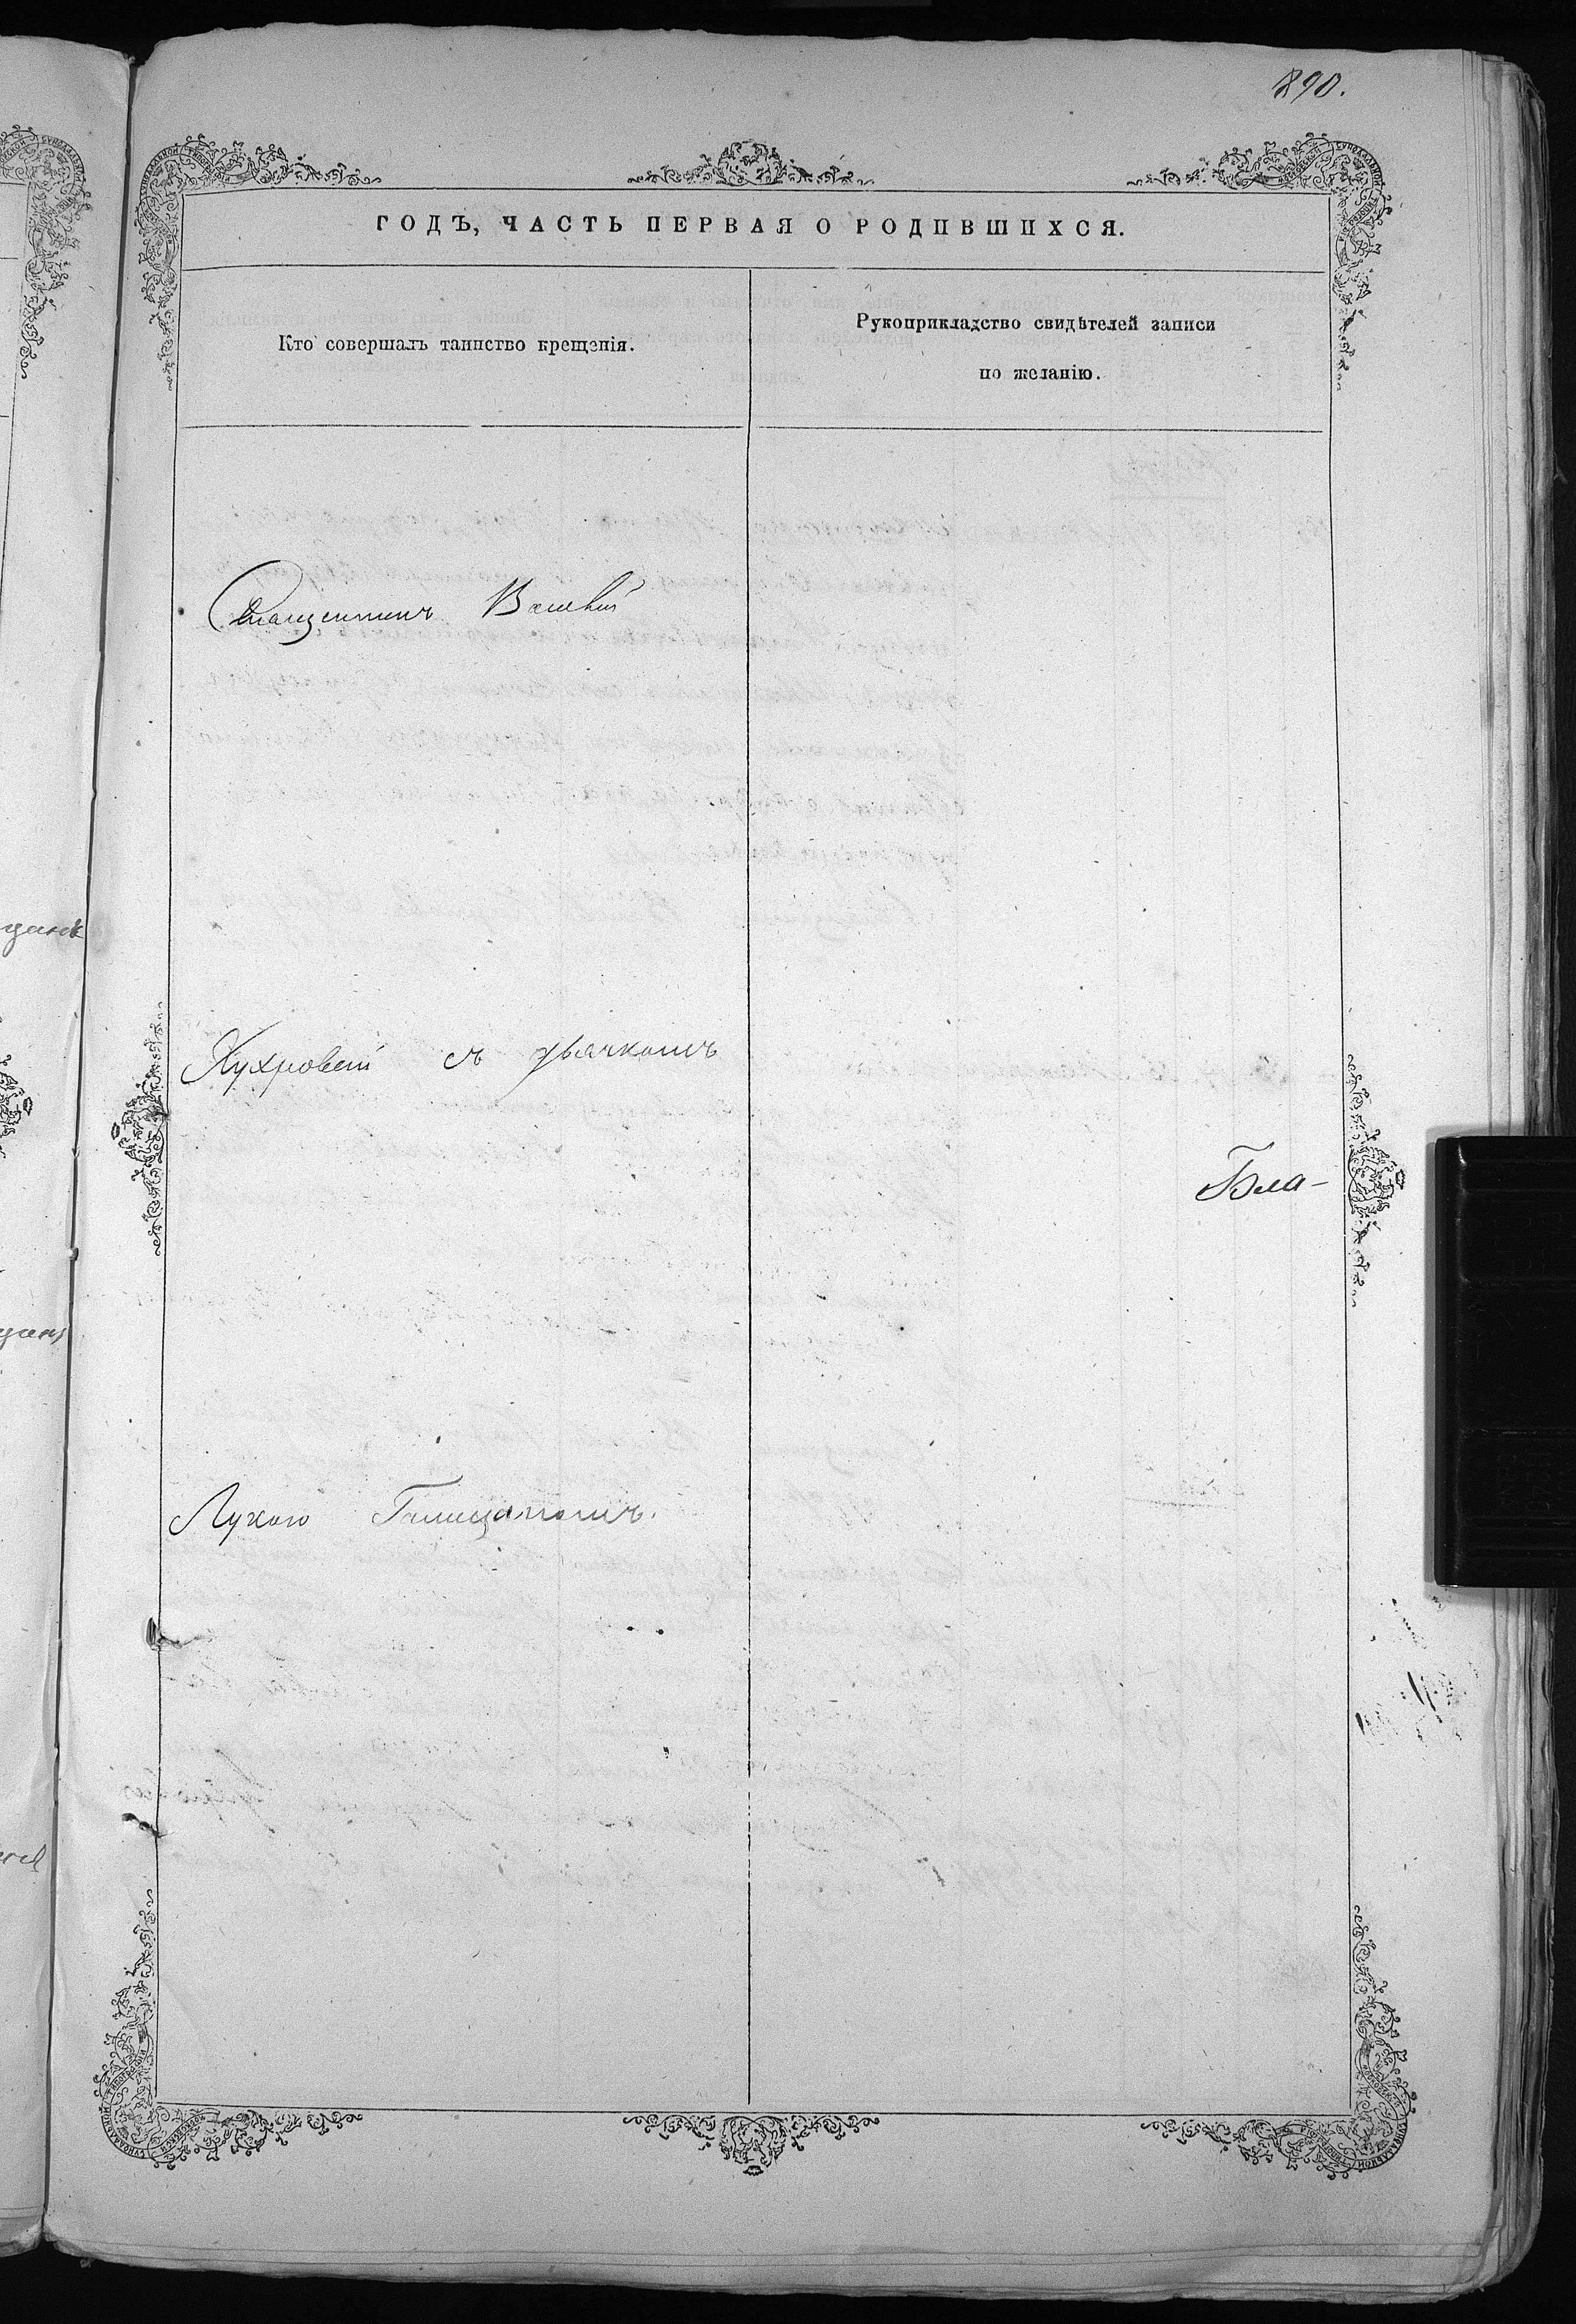 890.
ГОДЪ, ЧАСТЬ ПЕРВАЯ О РОДИВШИХСЯ.
Кто совершалъ таинство крещенія.
Рукоприкладство свидѣтелей записи
по желанію.
Священникъ Василій
Кухровскій съ дьячкомъ
Бла-
Лукою